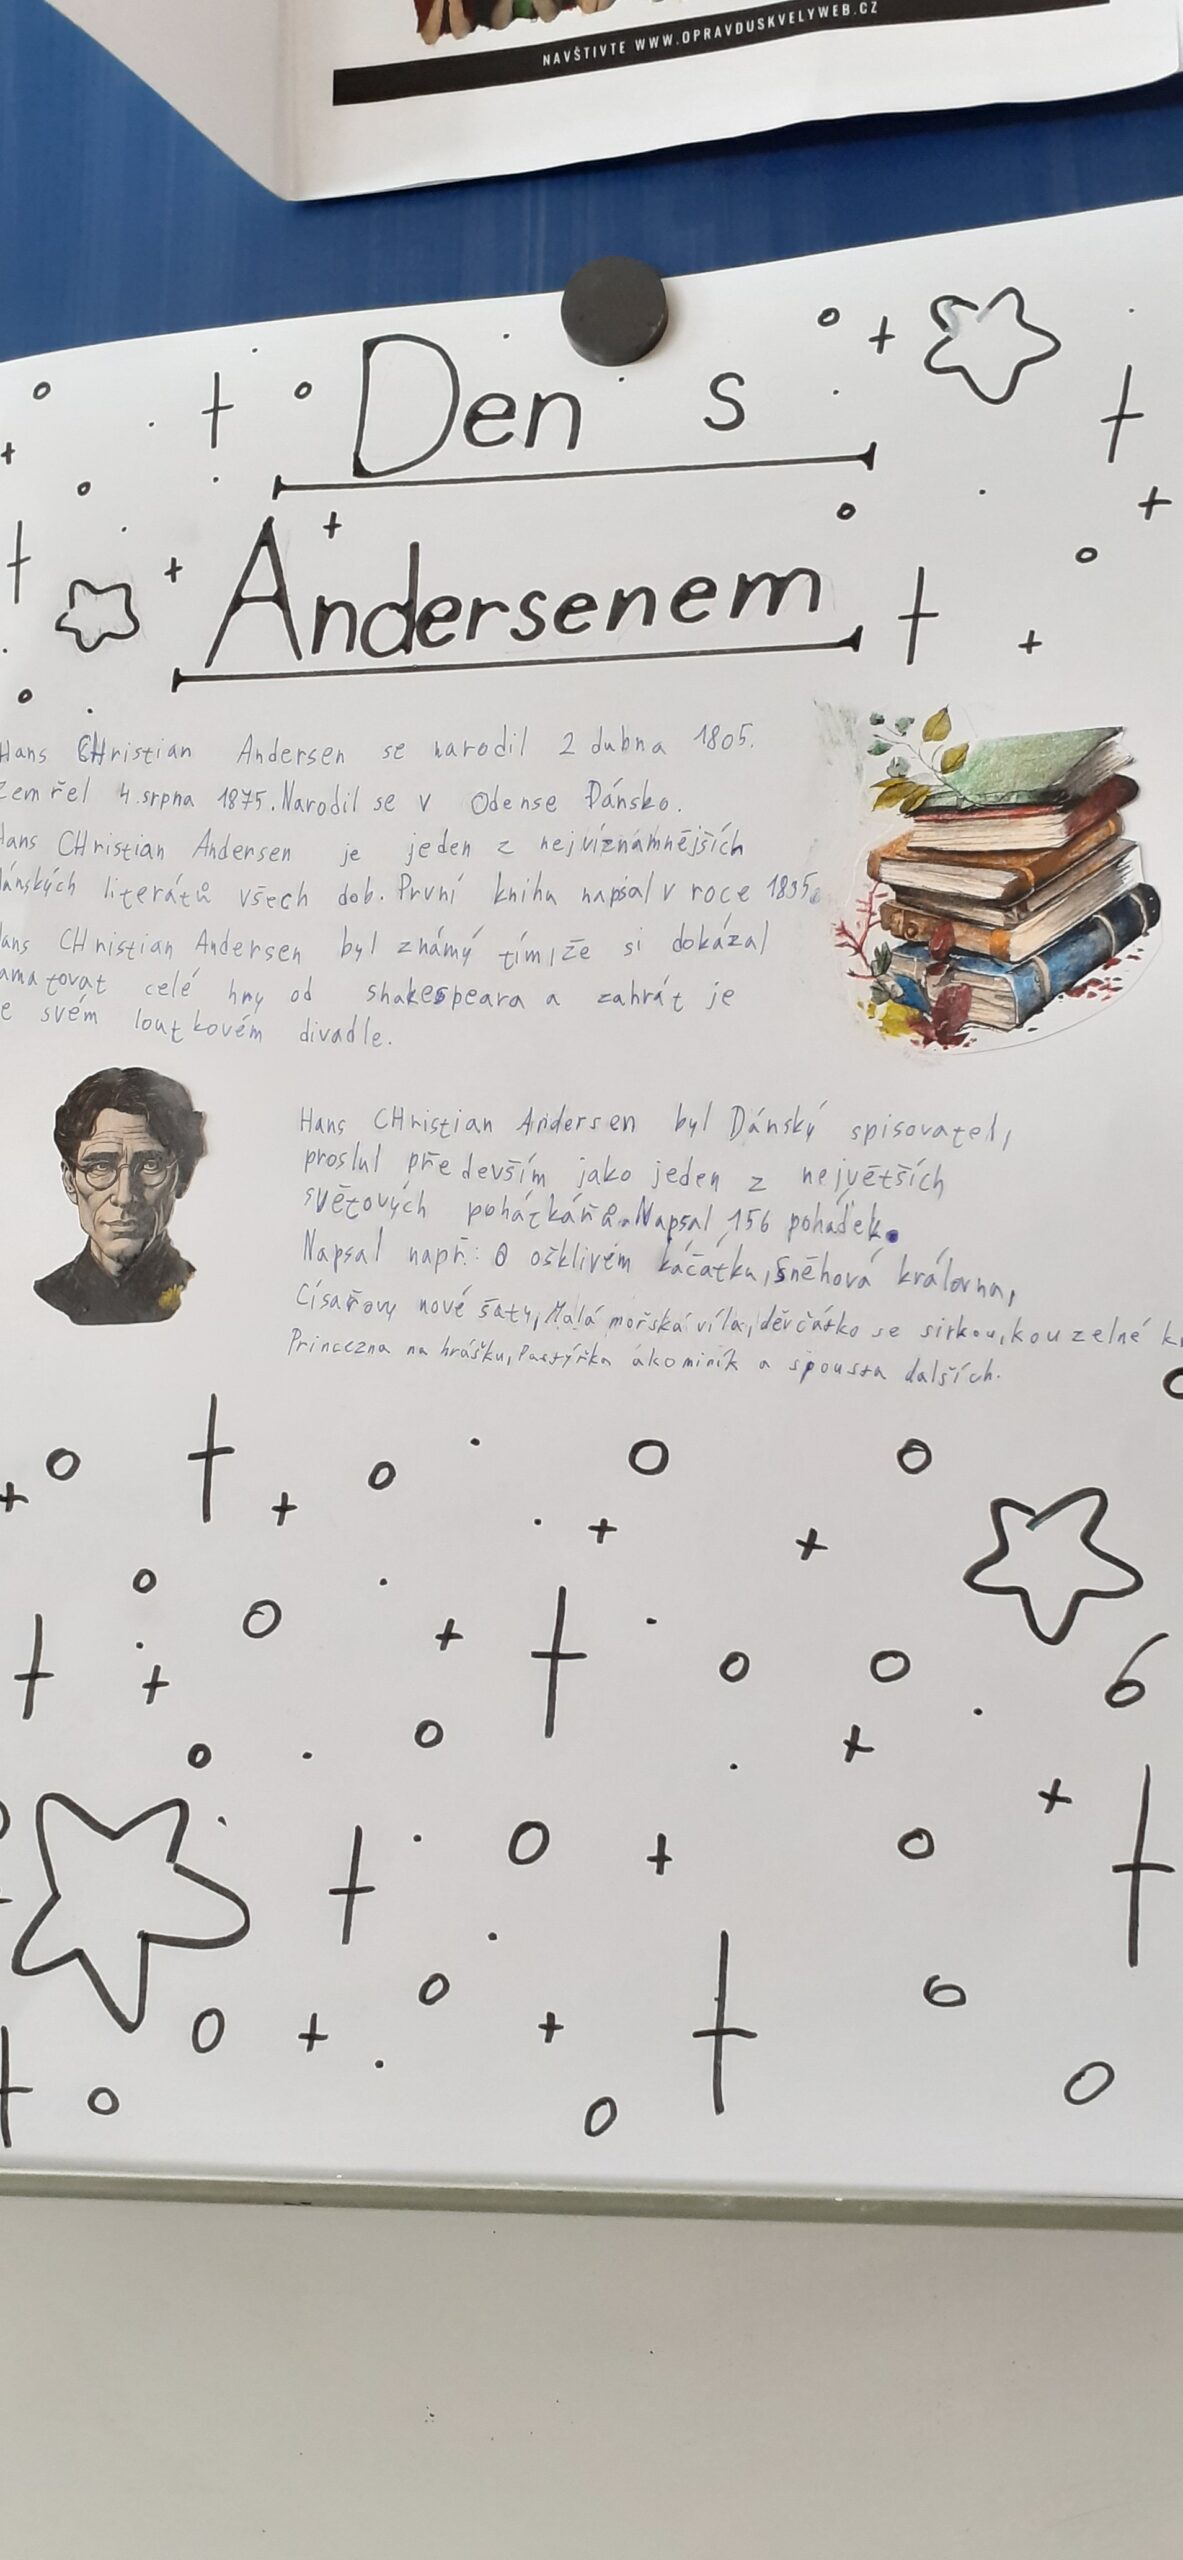 NAVŠTIVTE WWW.OPRAVDUSKVELYWEB.CZ
Den s
Andersenem
Hans CHristian Andersen se narodil 2 dubna 1805.
Zemřel 4.srpna 1875. Narodil se v Odense Dánsko.
Hans CHristian Andersen je jeden z nejvíznámnějších
dánských literátů všech dob. První knihu napsal v roce 1835.
Hans CHristian Andersen byl známý tím, že si dokázal
amatovat celé hry od shakespeara a zahrát je
e svém loutkovém divadle.
Hans CHristian Andersen byl Dánský spisovatel,
proslul především jako jeden z největších
světových pohátkářů. Napsal 156 pohádek.
Napsal např.: O ošklivém káčátku, Sněhová královna,
Císařovy nové šaty, Malá mořská víla, děvčátko se sirkou, kouzelné k
Princezna na hrášku, Pastýřka a kominík a spousta dalších.